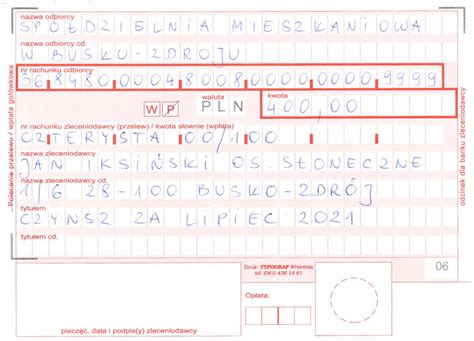 nazwa odbiorcy
SPÓŁDZIELNIA MIESZKANIOWA
nazwa odbiorcy cd.
W BUSKU-ZDROJU
nr rachunku odbiorcy
36 8480 0004 8008 0000 0000 9999
waluta kwota
W P PLN 400,00
nr rachunku zleceniodawcy (przelew) / kwota słownie (wpłata)
CZTERYSTA 00/100
nazwa zleceniodawcy
JAN IKSIŃSKI OS. SŁONECZNE
nazwa zleceniodawcy cd.
1/16 28-100 BUSKO-ZDRÓJ
tytułem
CZYNSZ ZA LIPIEC 2021
tytułem cd.
Polecenie przelewu / wpłata gotówkowa
odcinek dla banku zleceniodawcy
Druk: TYPOGRAF Września
tel. (061) 436 14 91
06
Opłata:
pieczęć, data i podpis(y) zleceniodawcy